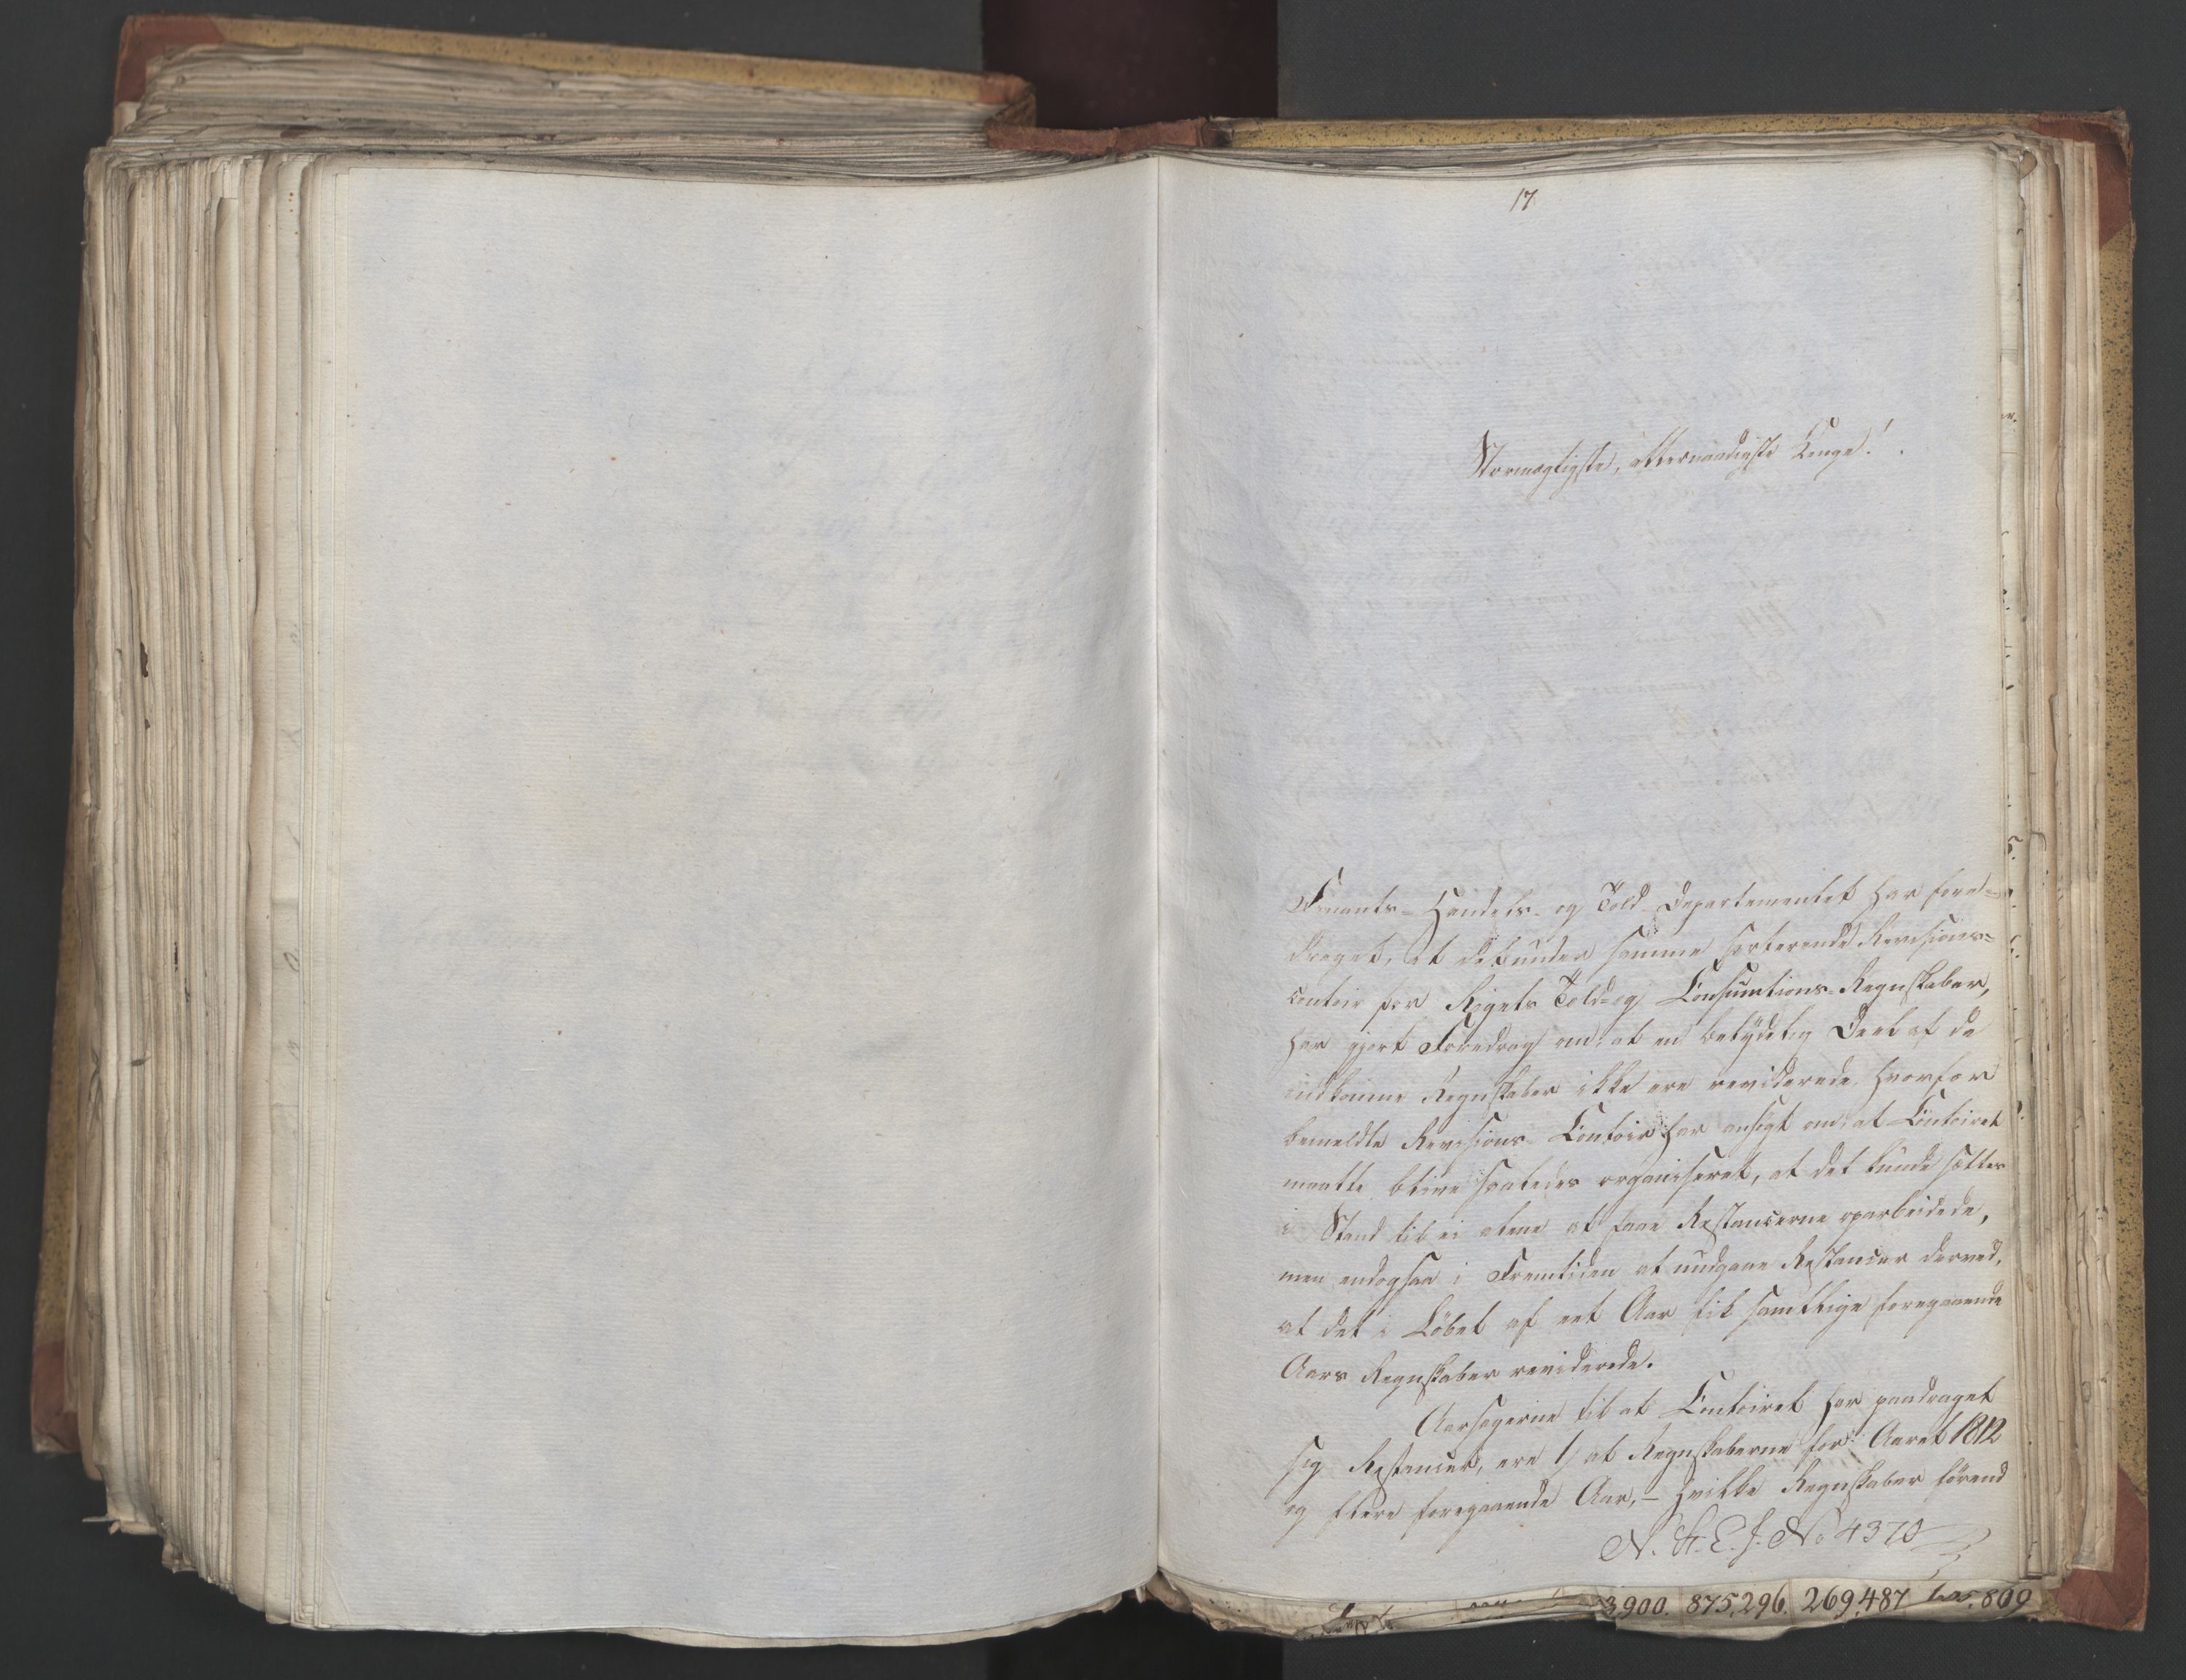 17
Stormægtigste, allernaadigste Konge!
Finants- Handels- og Told-Departementet har fore-
draget, at det under samme sorterende Revisions-
contoir for Rigets Told- og Consumtions-Regnskaber,
har gjort Foredrag om, at en betydelig Deel af de
indkomne Regnskaber ikke ere reviderede, hvorfor
bemeldte Revisions-Contoir har ansøgt om, at Contoiret
maatte blive saaledes organiseret, at det kunde sættes
i Stand til ei alene at faae Restancerne oparbeidede,
men endogsaa i Fremtiden at undgaae Restancer derved,
at det i Löbet af eet Aar fik samtlige foregaaende
Aars Regnskaber reviderede.
Aarsagerne til at Contoiret har paadraget
sig Restancer, ere 1) at Regnskaberne for Aaret 1812
og flere foregaaende Aar, – hvilke Regnskaber förend
N. A. E. J. No 4370
3,900. 875,296. 269,487 809